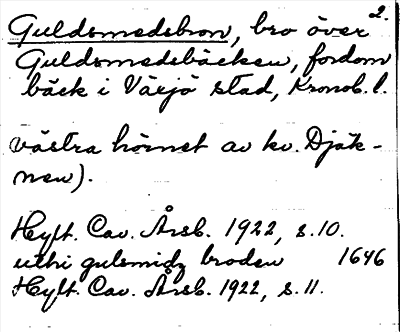 2.
Guldsmedsbron, bro över
Guldsmedsbäcken, fordom
bäck i Växjö stad, Kronob. l.
västra hörnet av kv. Djäk-
nen).
Hylt. Cav. Årsb. 1922, s. 10.
uthi gulsmidz broden 1646
Hylt. Cav. Årsb. 1922, s. 11.